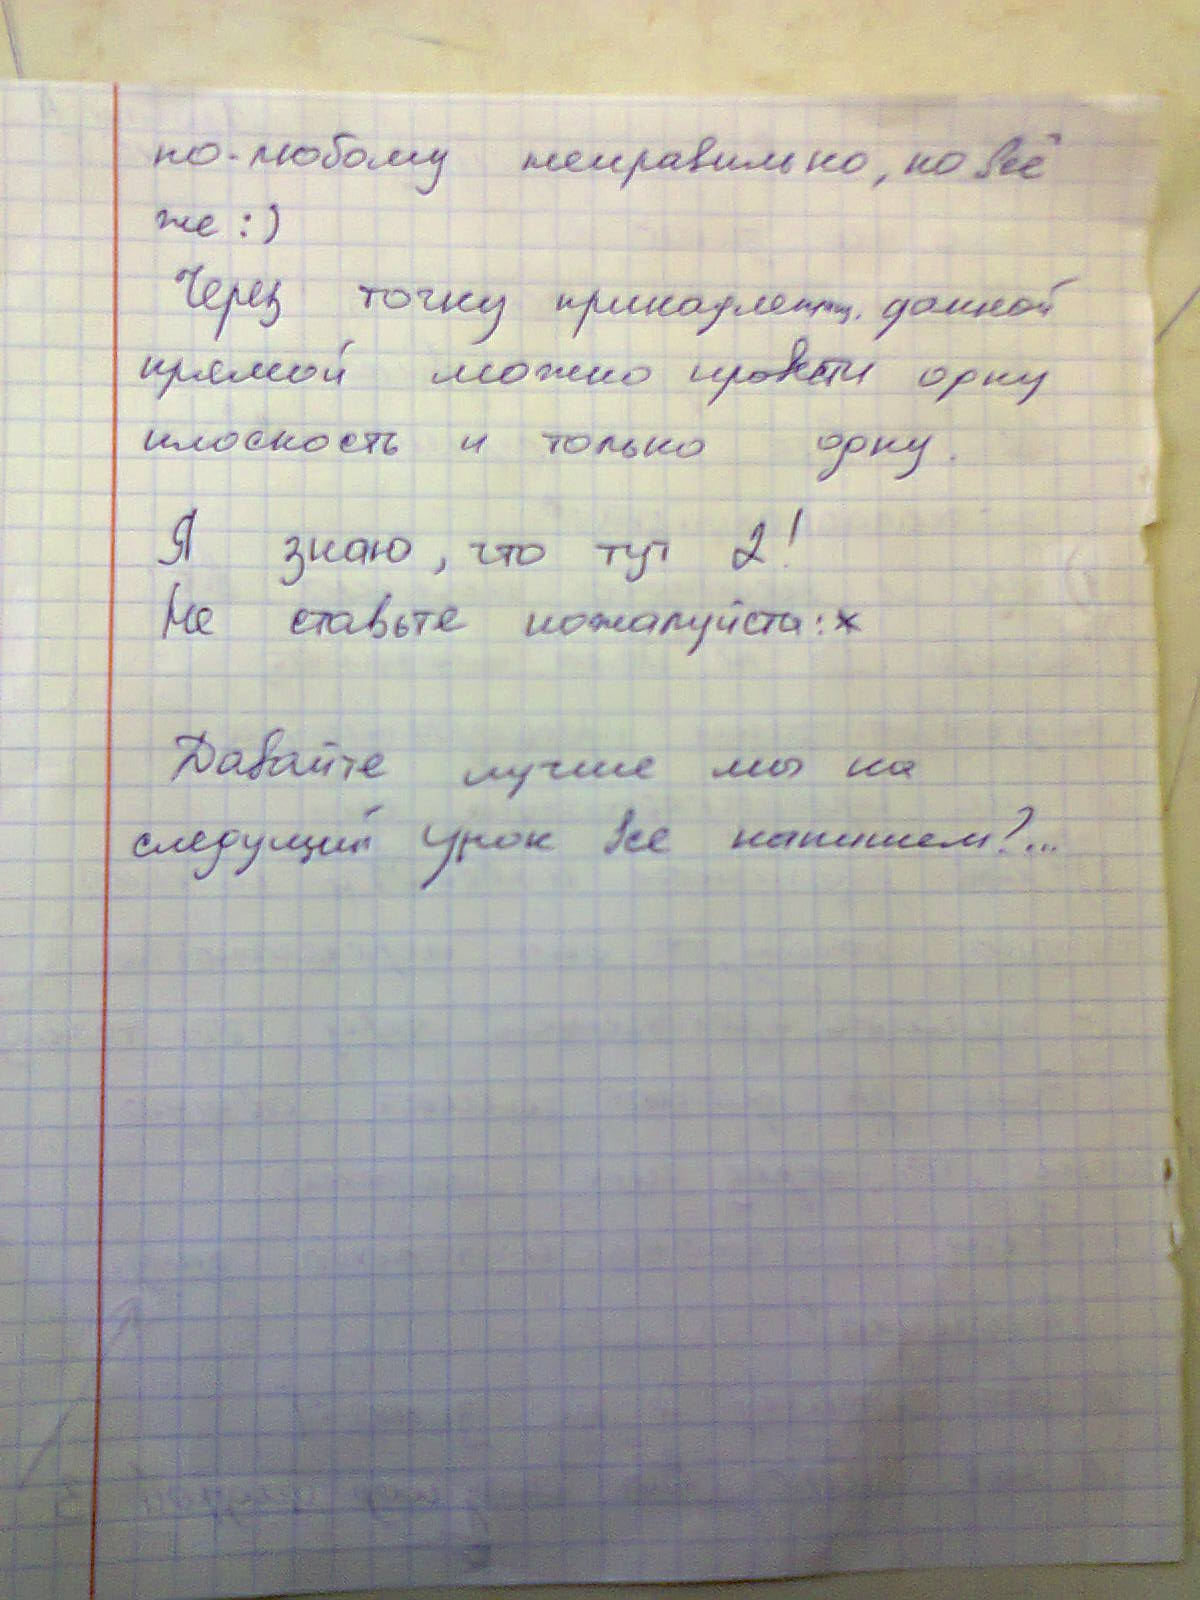 по-любому неправильно, но всё
же :)
Через точку принадлежащ. данной
прямой можно провести одну
плоскость и только одну.
Я знаю, что тут 2!
Не ставьте пожалуйста :x
Давайте лучше мы на
следущий урок все напишем?...